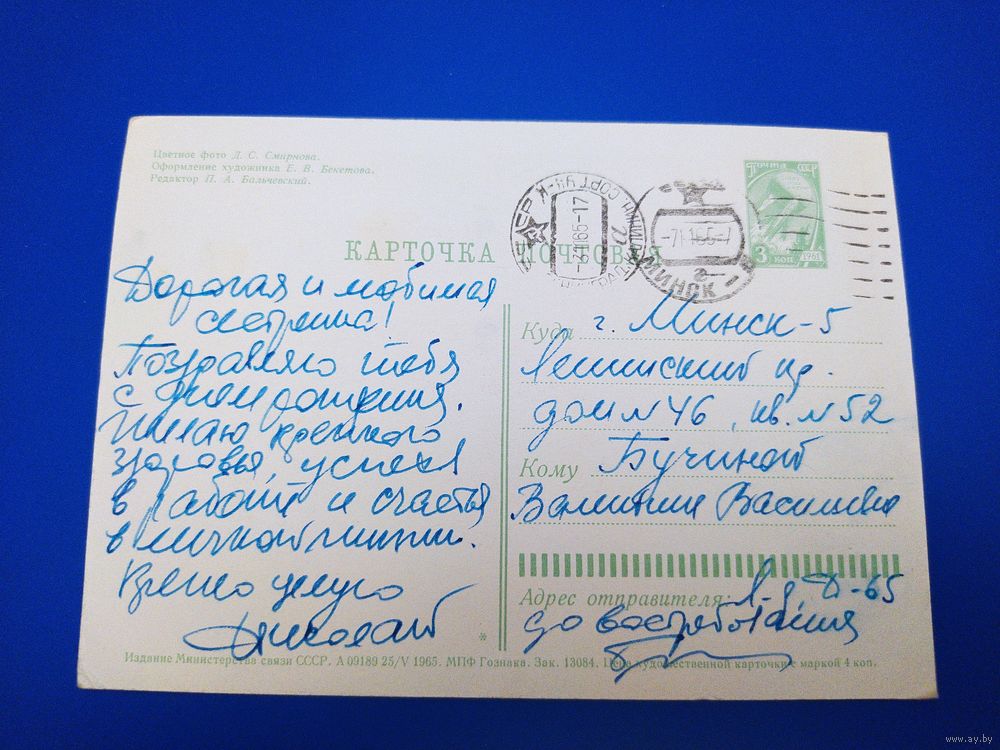 Цветное фото Д. С. Смирнова.
Оформление художника Е. В. Бекетова.
Редактор П. А. Бальчевский.
Почта СССР
3 коп
1961
КАРТОЧКА ПОЧТОВАЯ
-3 11 65-17
-7 11 65-7
МИНСК
Дорогая и любимая
сестрица!
Поздравляю тебя
с днем рождения.
Желаю крепкого
здоровья, успеха
в работе и счастья
в личной жизни.
Крепко целую
Николай
Куда г. Минск-5
Ленинский пр.
дом N 46, кв. N 52
Кому Бучиной
Валентине Васильевне
Адрес отправителя: Л-д, Д-65
до востребования
Издание Министерства связи СССР. А 09189 25/V 1965. МПФ Гознака. Зак. 13084. Цена художественной карточки с маркой 4 коп.
www.ay.by